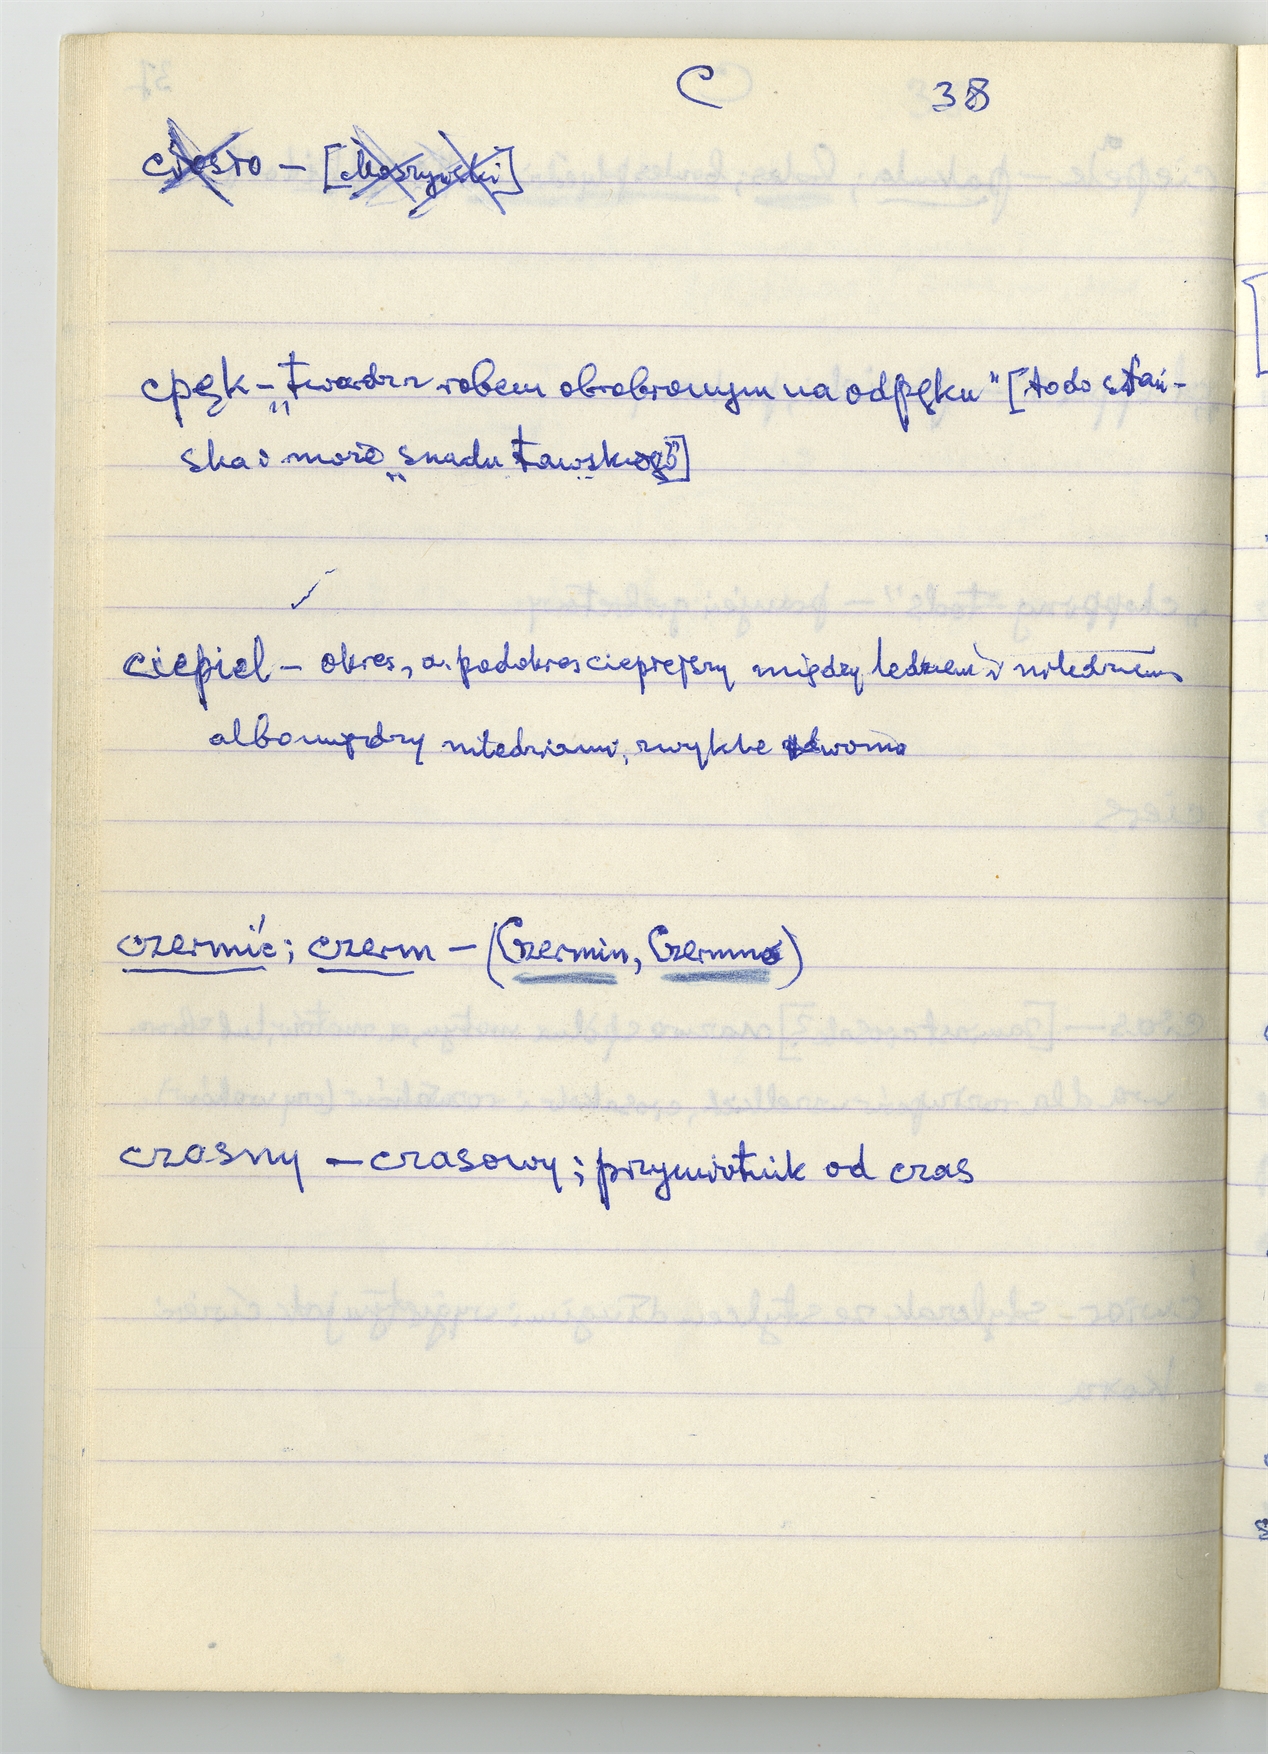 C 38
ciosło – [Moszyński]
cpęk – „twardz z robem obrobionym na odpęku" [łodo stań-
ska i może „snadu Ławskiego"]
ciepiel – okres, a. podokres cieplejszy między ledziem i niledziem
albo między niledziami, zwykle dwoma
czermić; czerm – (Czermin, Czermno)
czasny – czasowy; przymiotnik od czas